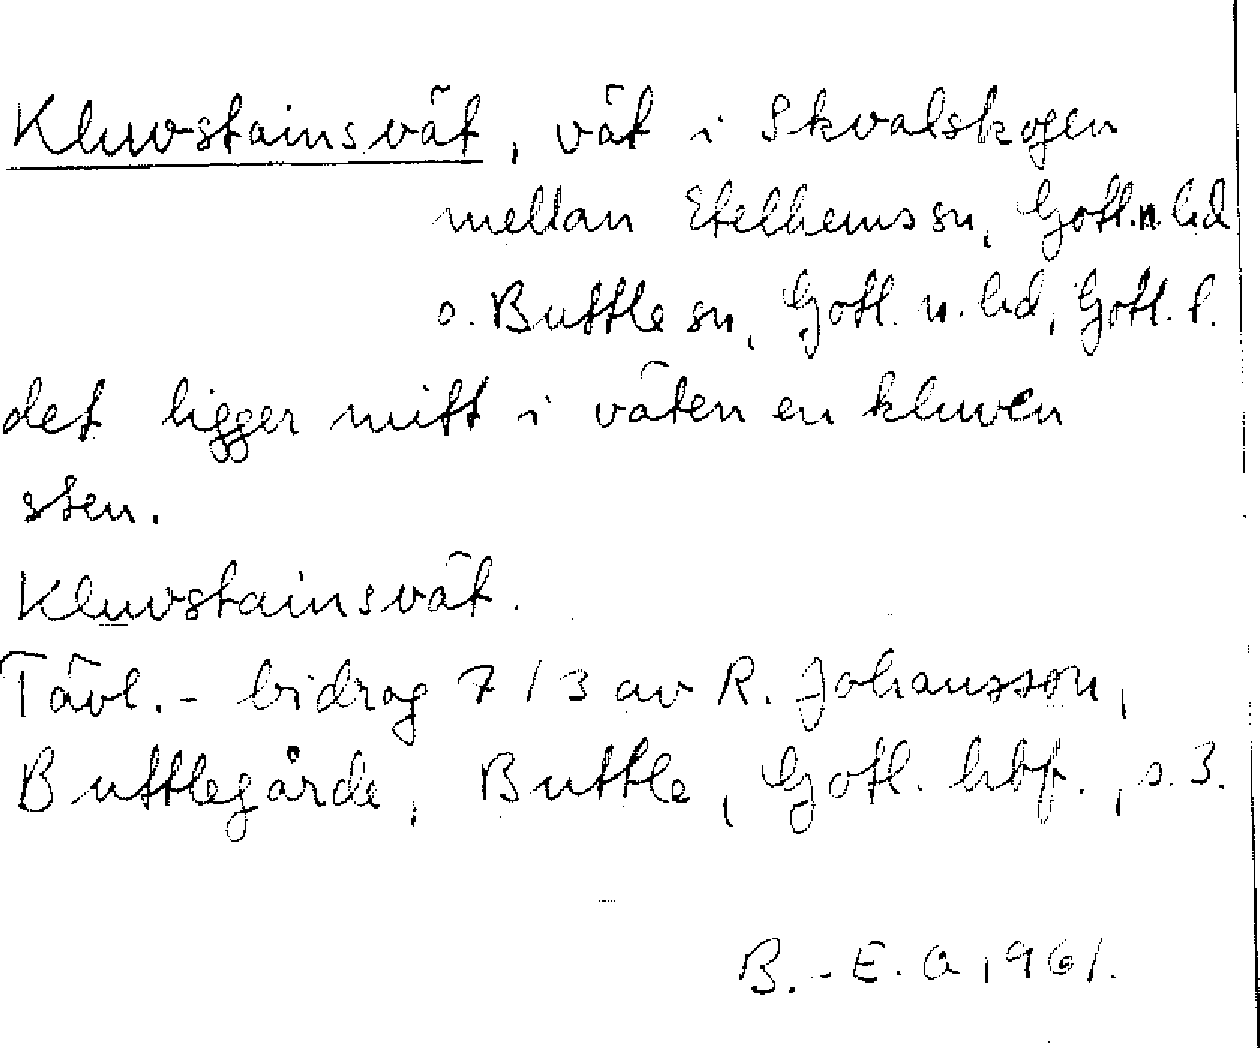 Kluvstainsvät, vät i Skvalskogen
mellan Etelhems sn, Gotl. n. hd
o. Buttle sn, Gotl. n. hd, Gotl. l.
det ligger mitt i väten en kluven
sten.
Kluvstainsvät.
Tävl.- bidrag 7/3 av R. Johansson,
Buttlegårde, Buttle, Gotl. hbf., s. 3.
B.-E. A 1961.